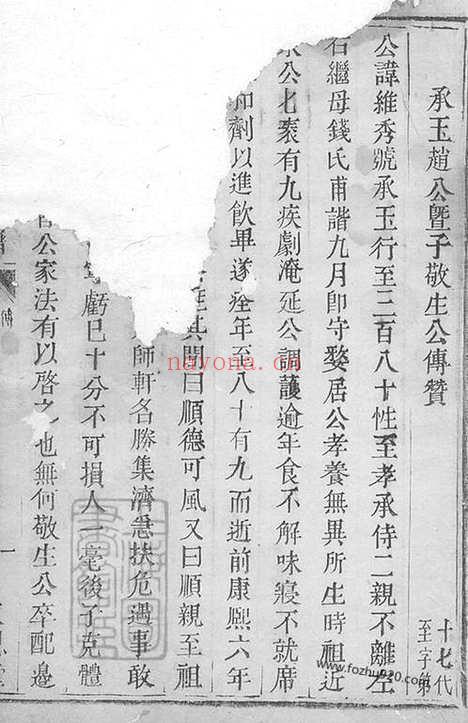 承玉趙公暨子敬生公傳贊
十七代
至字第
公諱維秀號承玉行至二百八十性至孝承侍二親不離左
右繼母錢氏甫諧九月卽守婺居公孝養無異所生時祖近
公七袠有九疾劇淹延公調護逾年食不解味寢不就席
和劑以進飲畢遂痊年至八十有九而逝前康熙六年
其閭曰順德可風又曰順親至祖
師軒名勝集濟急扶危遇事敢
虧巳十分不可損人一毫後子克體
公家法有以啓之也無何敬生公卒配邊
傳
一
nayona.cn
www.fozhu920.com